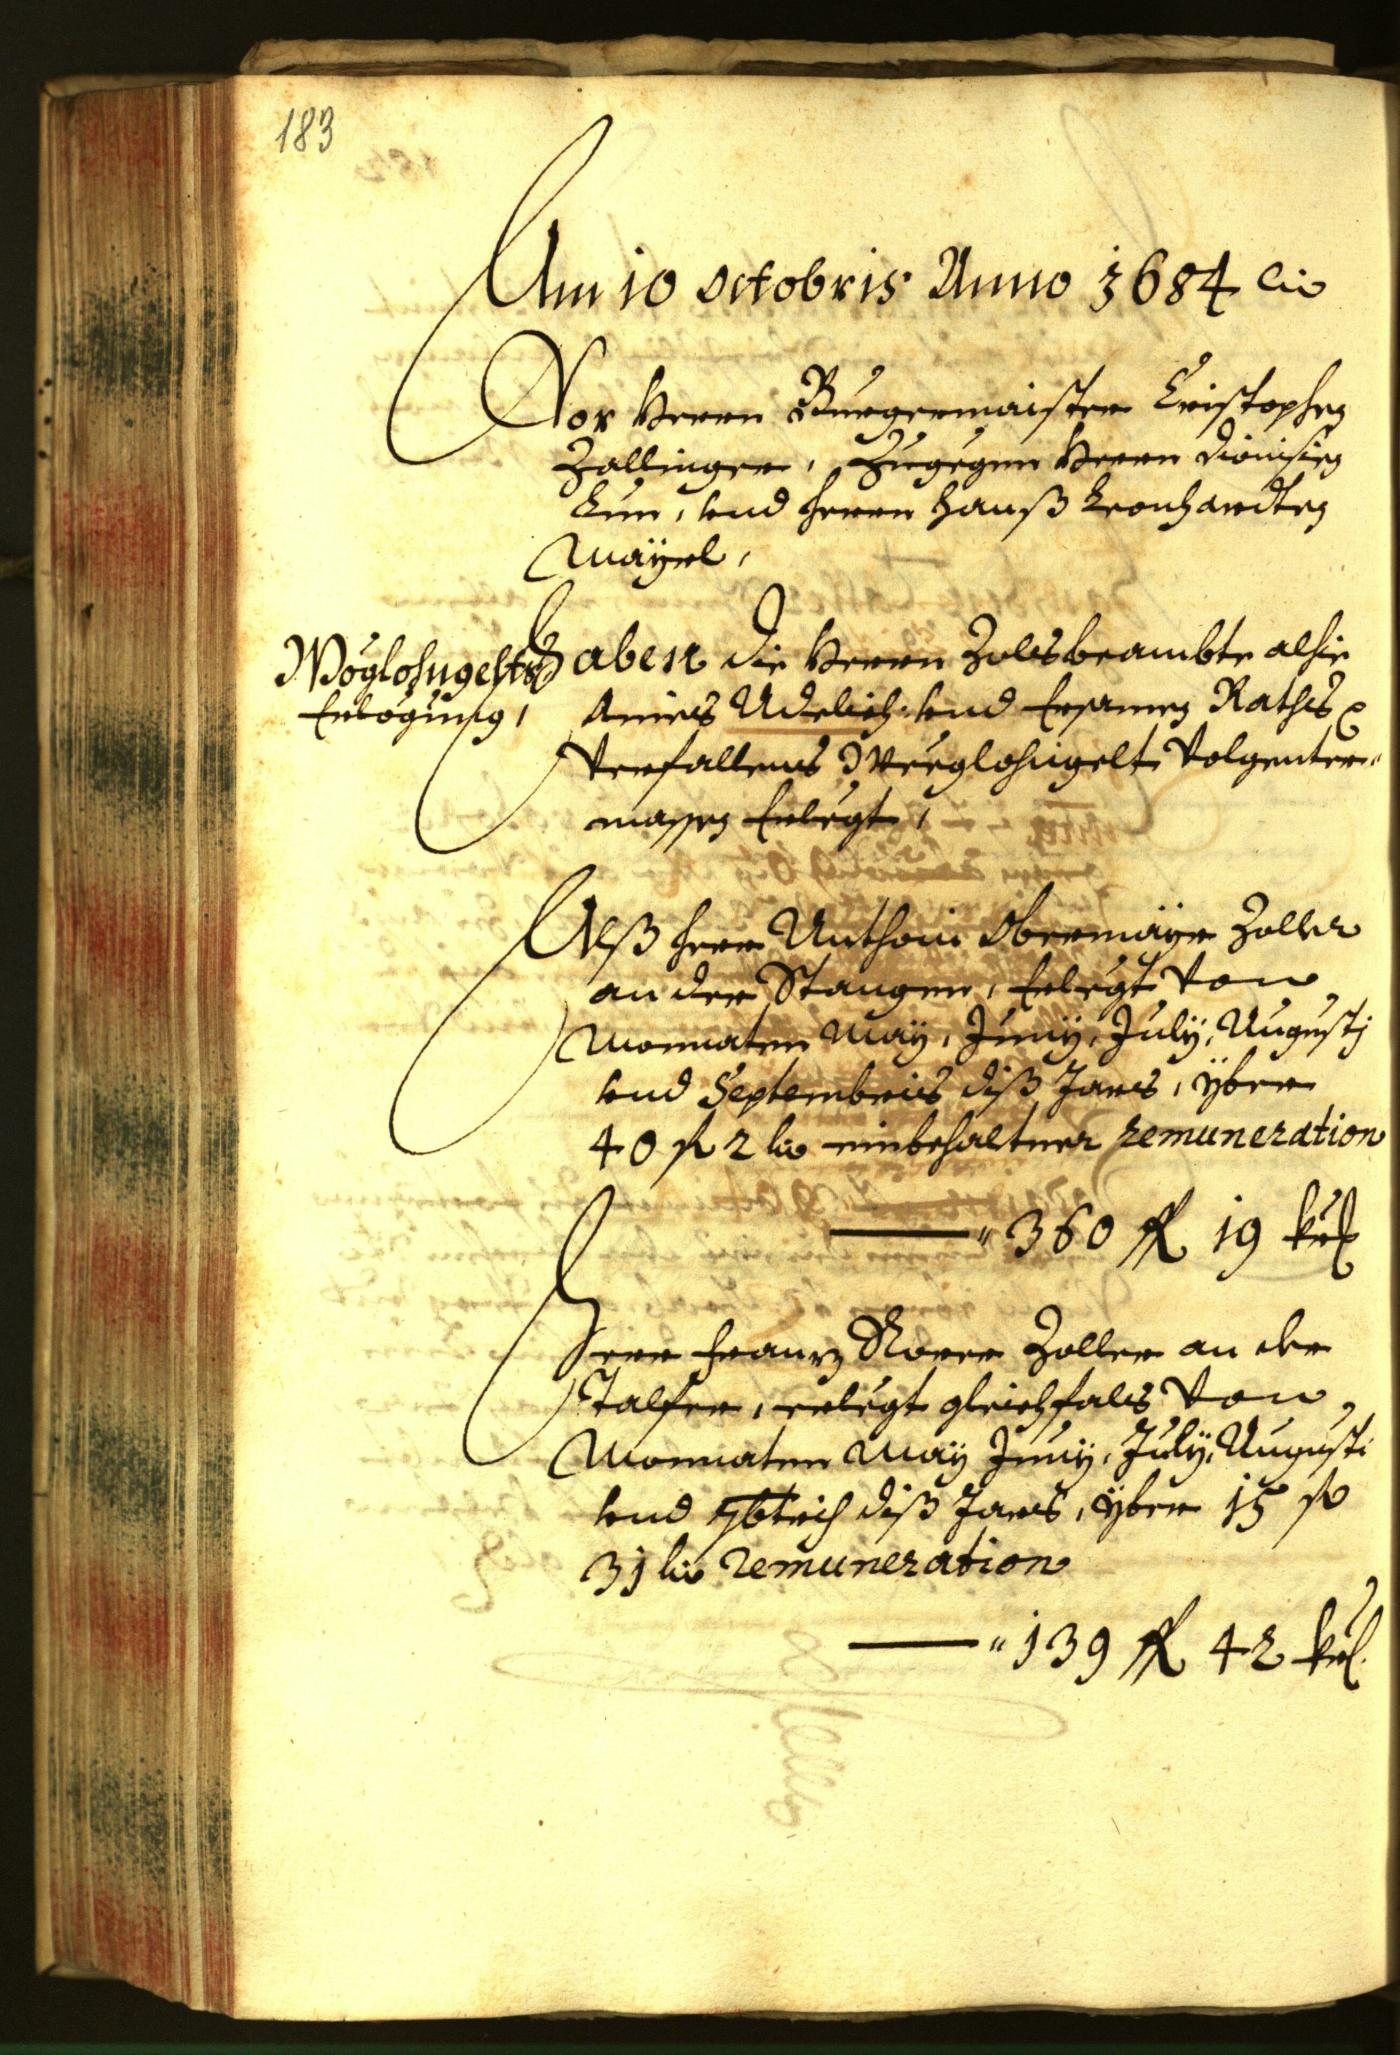 183
Am 10 octobris Anno 1684 etc
Vor Herrn Burgermaister Cristophen
Zallinger, Zugegen Herrn Dionisien
Cun, und Herrn Hanß Leonhardten
Mäyrl,
Wöglohngelts
Erlögung,
Haben die Herrn Zollsbeambte alhie
Aines Adelich: und Ersamen Raths
Verfallens Weeglohngelt Volgenter-
massen Erlegt,
Alß Herr Anthoni Obermäyr Zoller
an der Stangen, Erlegt Von
Monnaten May, Juny, July, Augustj
und Septembris diß Jars, yber
40 fl 2 kr einbehaltner remuneration
" 360 fl 19 kr
Herr Franz Rorer Zoller an der
Talfer, erlegt gleichfals Von
Monnaten May Juny, July, Augusti
und 7bris diß Jars, yber 15 fl
31 kr remuneration
" 139 fl 42 kr